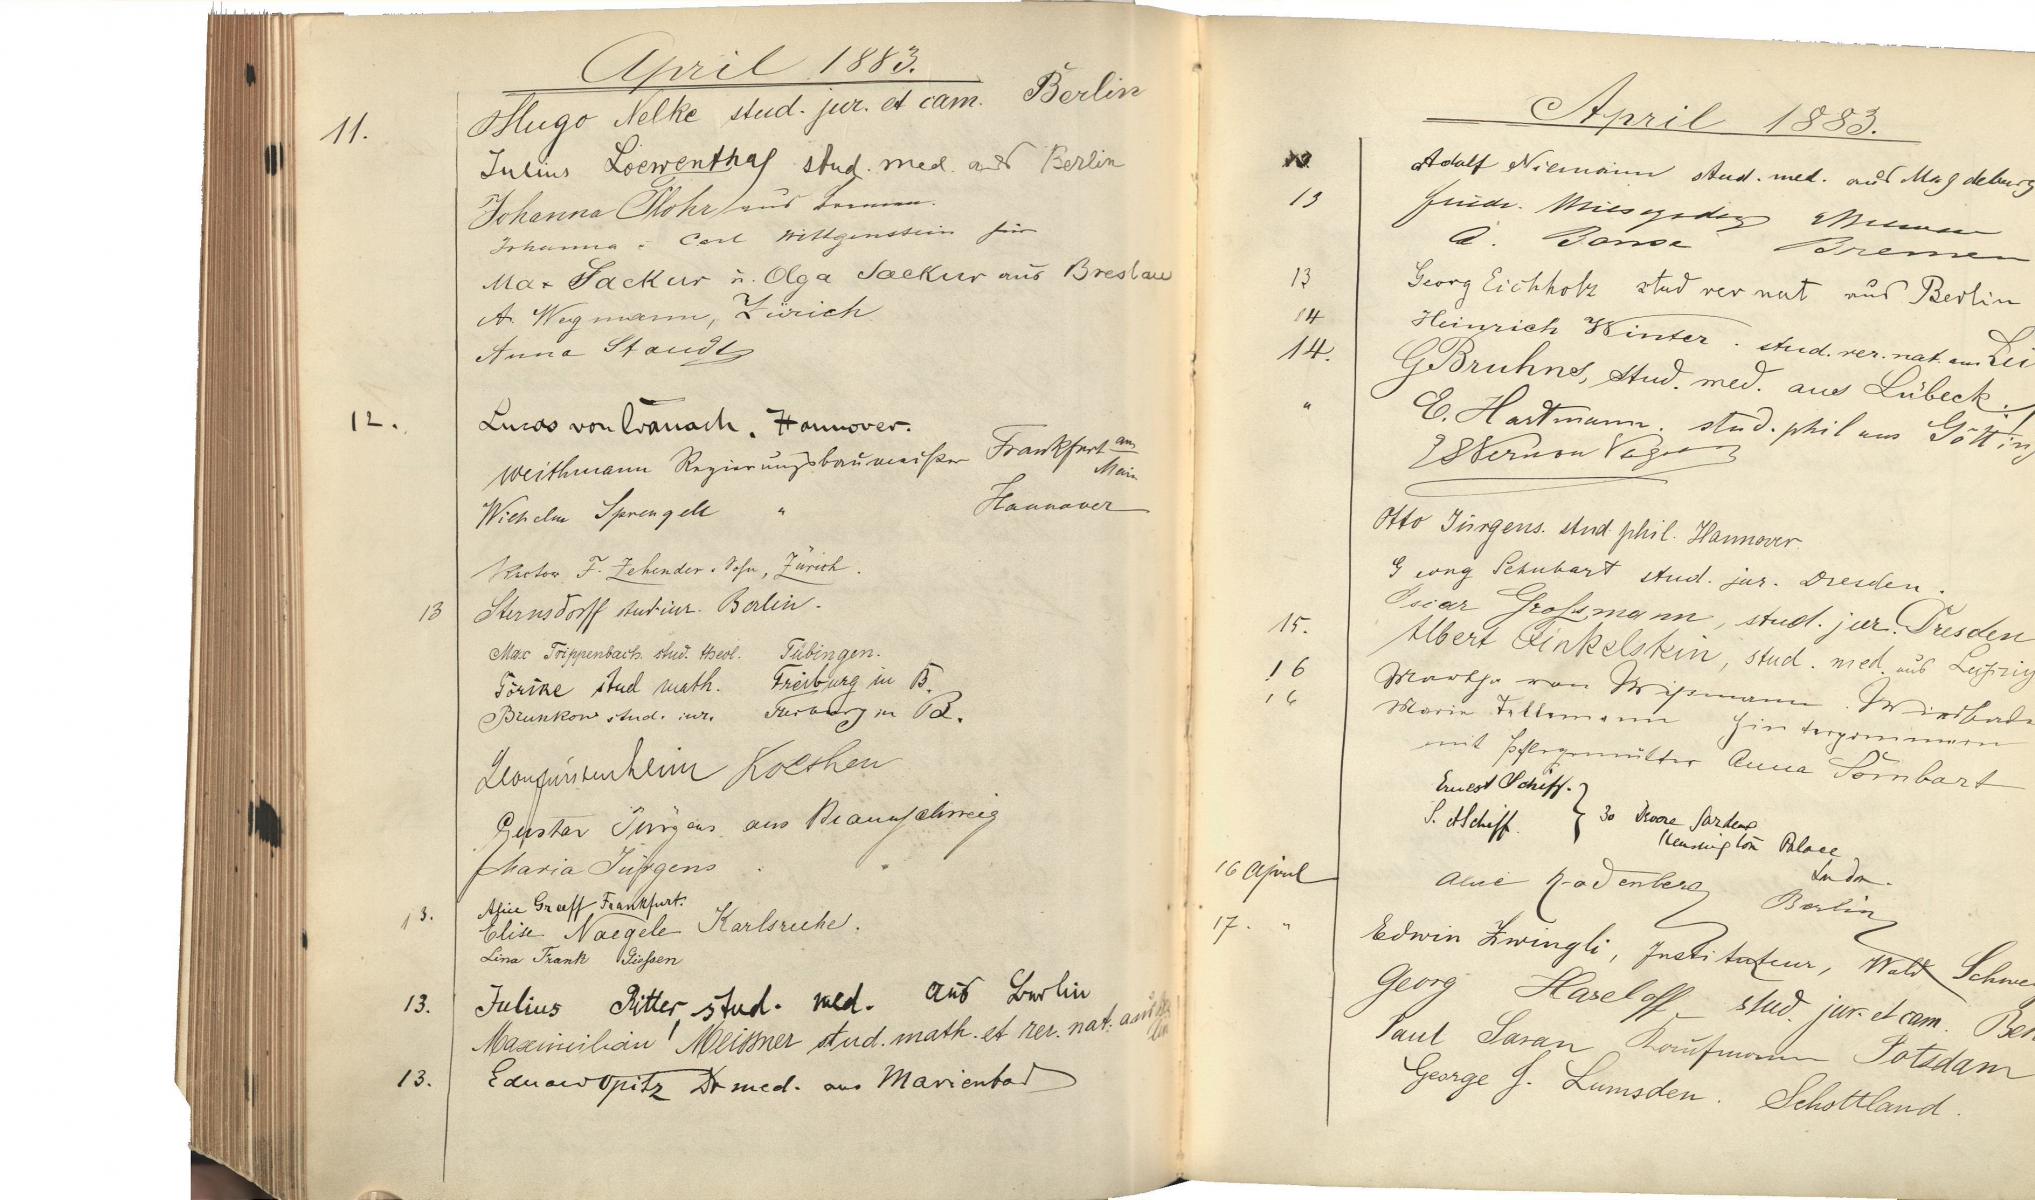 April 1883.
11. Hugo Nelke stud. jur. et cam. Berlin
Julius Loewenthal stud. med. aus Berlin
Johanna Flohr aus Bremen.
Johanna u. Carl Wittgenstein
Max Sackur u. Olga Sackur aus Breslau
A. Wegmann, Zürich
Anna Staudt
12. Lucas von Cranach. Hannover.
Weithmann Regierungsbaumeister Frankfurt am Main
Wilhelm Sprengell " Hannover
Rector F. Zehender, Zürich.
13 Sternsdorff stud. iur. Berlin.
Max Trippenbach. stud. theol. Tübingen.
stud math. Freiburg in B.
Brunkow stud. iur. Freiburg in B.
Koethen
Gustav Jürgens aus Braunschweig
Maria Jürgens "
Alice Graeff Frankfurt.
13. Elise Naegele Karlsruhe.
Lina Frank Giessen
13. Julius Ritter, stud. med. aus Berlin
Maximilian Meissner stud. math. et rer. nat. aus
13. Eduard Opitz Dr med. aus Marienbad
April 1883.
Adolf Niemann stud. med. aus Magdeburg
13
Bremen
13 Georg Eichholz stud rer nat aus Berlin
14 Heinrich Winter. stud. rer. nat. aus Lei
14. G Bruhns, stud. med. aus Lübeck.
" E. Hartmann. stud. phil aus Götting
Vernon
Otto Jürgens. stud. phil. Hannover.
Georg Schubart stud. jur. Dresden.
Oscar Grossmann, stud. jur. Dresden
15. Albert Finkelstein, stud. med. aus Leipzig
16 Martha von
16 Marie Hinterpommern
mit Pflegemutter Anna Sombart
Ernest Schiff.
S. A Schiff. } 30 Gardens
Kensington Palace
London.
16 April Alice Rodenberg Berlin
17. " Edwin Zwingli, Instituteur, Wald Schwe
Georg Haseloff stud. jur. et cam. Ber
Paul Saran Kaufmann Potsdam
George J. Lumsden. Schottland.